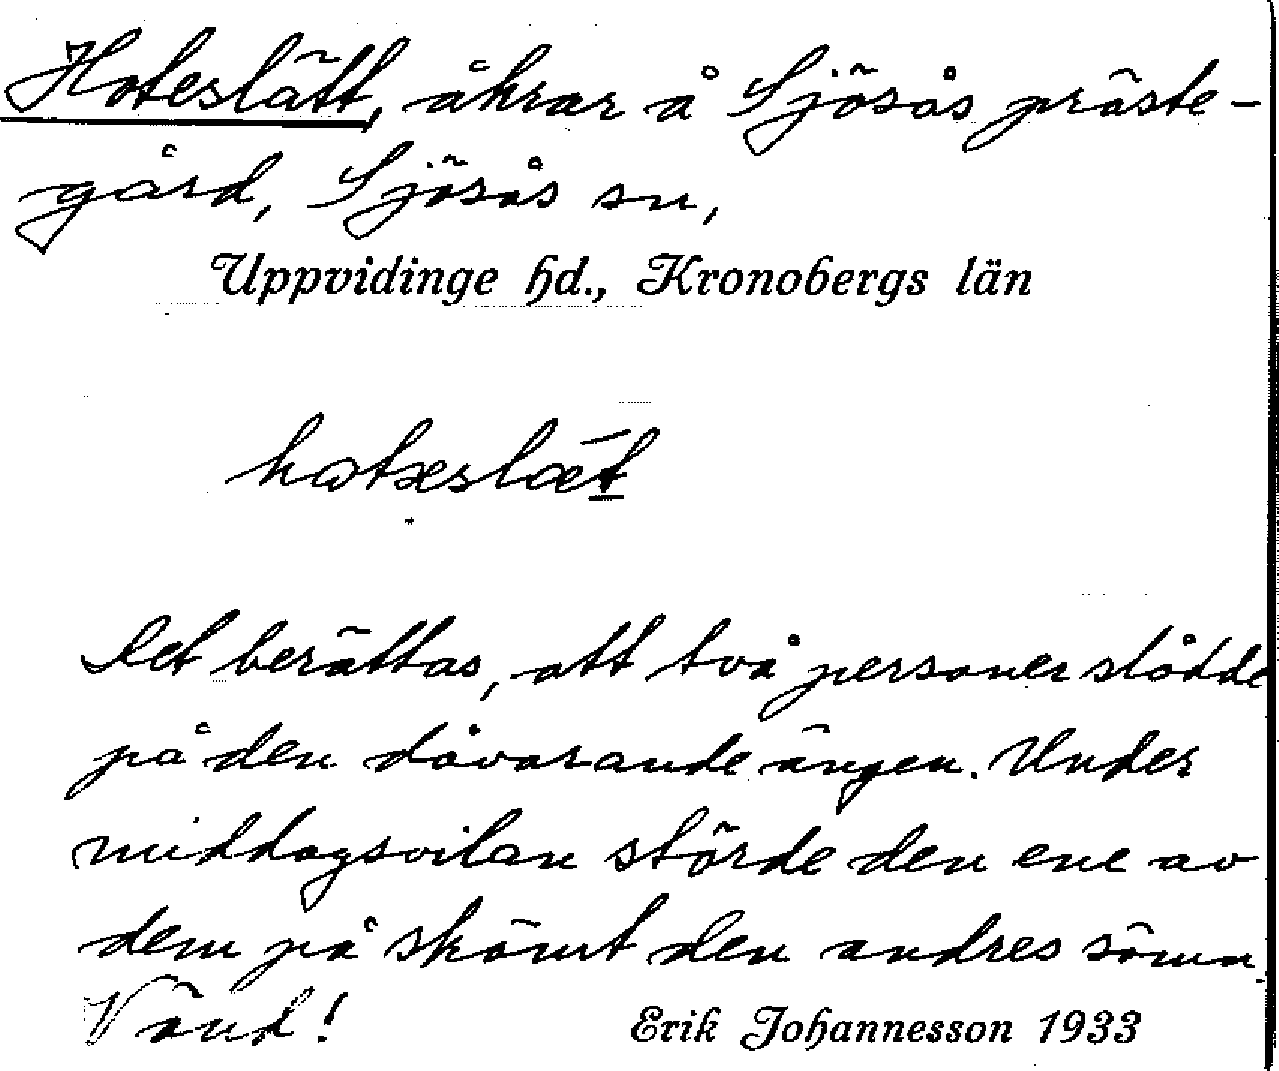 Hoteslätt, åkrar å Sjösås präste-
gård, Sjösås sn,
Uppvidinge hd., Kronobergs län
hotəslæt
Det berättas, att två personer slådde
på den dåvarande ängen. Under
middagsvilan störde den ene av
dem på skämt den andres sömn.
Vänd!
Erik Johannesson 1933